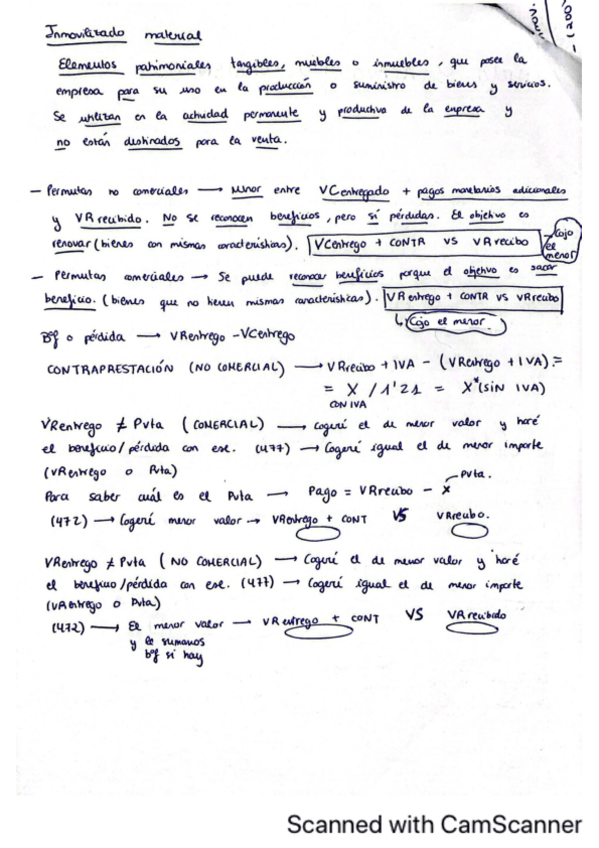 Inmovilizado material
Elementos patrimoniales tangibles, muebles o inmuebles, que posee la
empresa para su uso en la producción o suministro de bienes y servicios.
Se utilizan en la actividad permanente y productiva de la empresa y
no están destinados para la venta.
— Permutas no comerciales → Menor entre VCentregado + pagos monetarios adicionales
y VRrecibido. No se reconocen beneficios, pero sí pérdidas. El objetivo es
renovar (bienes con mismas características). VCentrego + CONTR VS VRrecibo
Cojo el menor
— Permutas comerciales → Se puede reconocer beneficios porque el objetivo es sacar
beneficio. (bienes que no tienen mismas características). VRentrego + CONTR VS VRrecibo
Cojo el menor.
Bº o pérdida → VRentrego - VCentrego
CONTRAPRESTACIÓN (NO COMERCIAL) → VRrecibo + IVA - (VRentrego + IVA) =
= X / 1'21 = X* (SIN IVA)
CON IVA
VRentrego ≠ Pvta (COMERCIAL) → Cogeré el de menor valor y haré
el beneficio/pérdida con ese. (477) → Cogeré igual el de menor importe
(VRentrego o Pvta)
Para saber cuál es el Pvta → Pago = VRrecibo - X
Pvta.
(472) → Cogeré menor valor → VRentrego + CONT VS VRrecibo.
VRentrego ≠ Pvta (NO COMERCIAL) → Cogeré el de menor valor y haré
el beneficio/pérdida con ese. (477) → Cogeré igual el de menor importe
(VRentrego o Pvta)
(472) → El menor valor → VRentrego + CONT VS VRrecibido
y le sumamos
bº si hay
Scanned with CamScanner